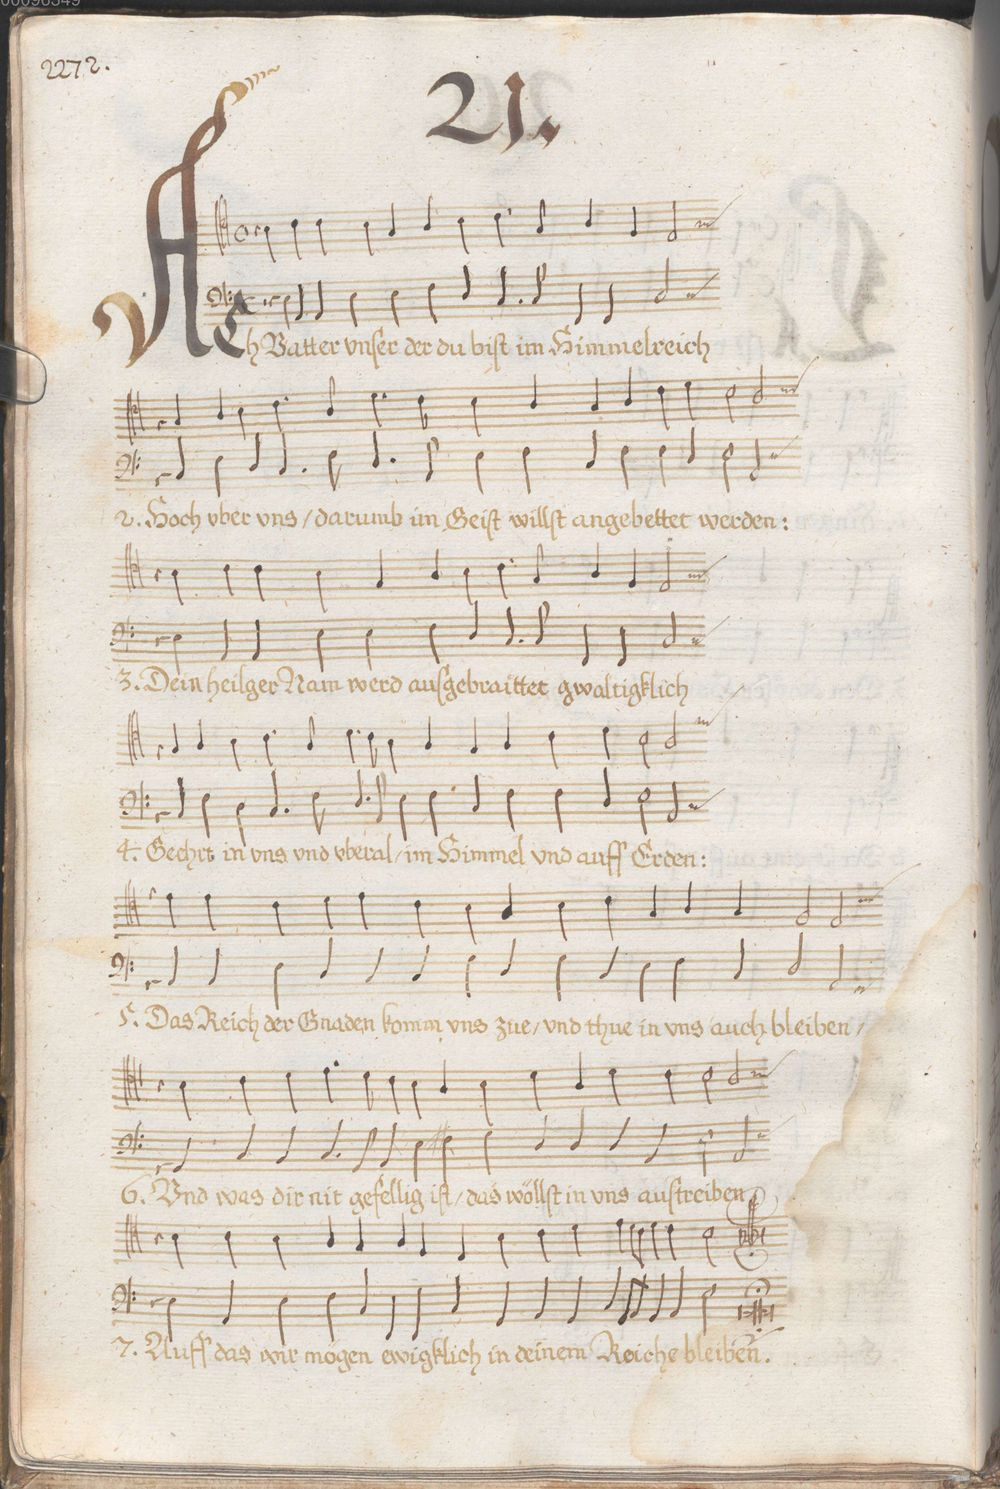 00096349
2272.
21.
Ach Vatter vnser der du bist im Himmelreich
2. Hoch vber vns / darumb im Geist willst angebettet werden:
3. Dein heilger Nam werd ausgebraittet gwaltigklich
4. Geehrt in vns vnd vberal / im Himmel vnd auff Erden:
5. Das Reich der Gnaden komm vns zue / vnd thue in vns auch bleiben /
6. Vnd was dir nit gefellig ist / das wöllst in vns austreiben
7. Auff das wir mögen ewigklich in deinem Reiche bleiben.